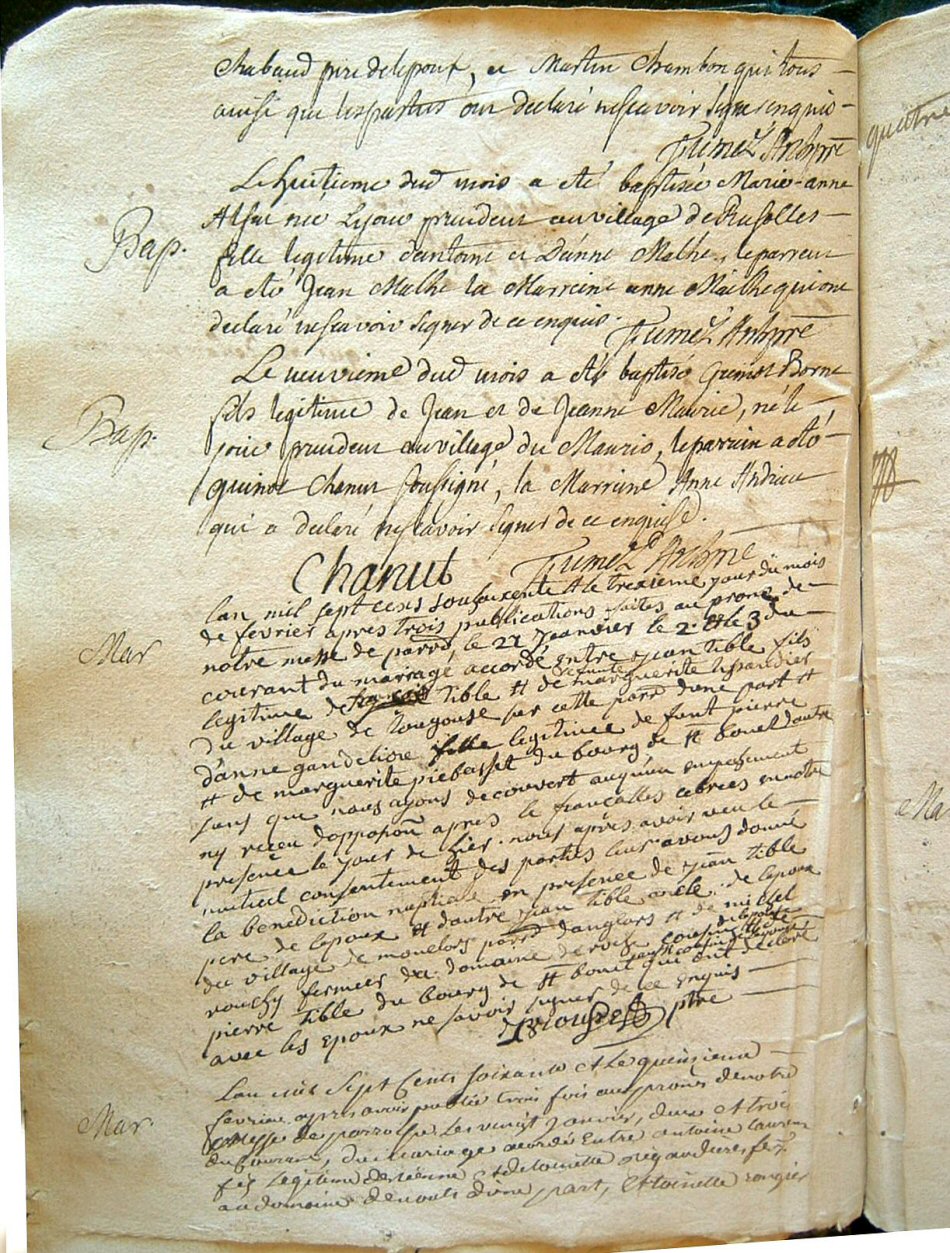 Chabaud pere de lepoux, et Martin Chambon qui tous
ainsi que les parties ont declaré nescavoir signer enquis
Fumel Archpre
quatre
Le huitieme dud mois a eté baptisée Marie-anne
Bap.
née le jour precedent au village de
fille legitime d'antoine et D'anne Malhe, le parrein
a eté Jean Malhe la Marreine anne Malhe qui ont
declaré nescavoir signer de ce enquis.
Fumel Archpre
Le neuvieme dud mois a eté baptisé Guinot Borne
fils legitime de Jean et de Jeanne Maurie, né le
Bap.
jour precedent au village du Mauris, le parrain a eté
guinot Chanut soussigné, la Marreine Anne Andrieu
qui a declaré nescavoir signer de ce enquise.
Chanut
Fumel Archpre
lan mil sept cens soissixente & le treizieme jour du mois
de fevrier apres trois publications faites au prone de
notre messe de parrse le 27 jeanvier le 2 et le 3 du
Mar
courant du mariage accordé entre jean tible fils
legitime de tible & de defunte marguerite
du village de sur cette parr dune part &
d'anne gandelioze fille legitimee de funt pierre
& de marguerite piebasset du bourg de st bonet d'autre
sans que nous ayons decouvert auqu'un empechement
ny receu dopposon apres le francalles cebrees en notre
presence le jour de hier. nous apres avoir veu le
mutuel consentement des parties leur avons donné
la benediction nuptiale en presence de jean tible
pere de lepoux & dautre jean tible oncle de lepoux
du village de parrse danglars & de michel
rouchy fermier du domaine de cousin de lepouse
pierre tible du bourg de st bonet qui ont declaré
avec les epoux ne savoir signer de ce enquis
ptre
Lan mil Sept Cents soixante et le quinzieme
fevrier apres avoir publié trois fois aux prones de notre
Mar
Messe de parroisse Les vingt janvier, deux et trois
du Courant, du mariage acordé Entre antoine
fils Legitime detienne et de toinette
au domaine dune part, Et toinette rongier